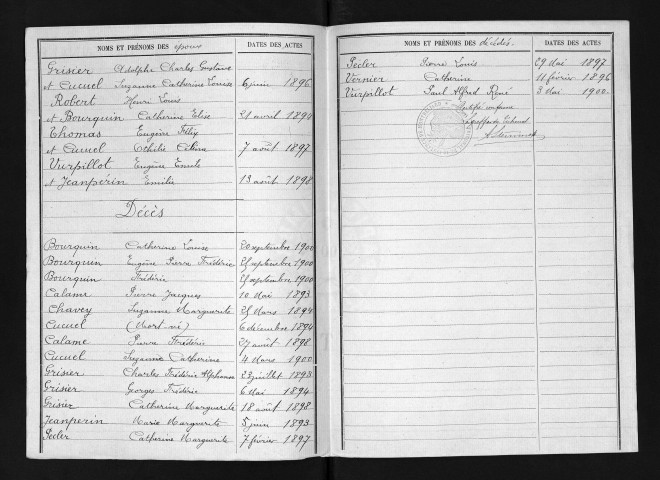 NOMS ET PRÉNOMS DES époux DATES DES ACTES
Grisier Adolphe Charles Gustave
et Cucuel Suzanne Catherine Louise 6 juin 1896
Robert Henri Louis
et Bourquin Catherine Elise 21 avril 1894
Thomas Eugène Félix
et Cucuel Othilie Célina 7 août 1897
Vurpillot Eugène Emile
et Jeanperin Emilie 13 août 1898
Décès
Bourquin Catherine Louise 20 septembre 1900
Bourquin Eugène Pierre Frédéric 25 septembre 1900
Bourquin Frédéric septembre 1900
Calame Pierre Jacques 10 Mai 1893
Chavey Suzanne Marguerite 25 Mars 1894
Cucuel (Mort-né) 6 décembre 1894
Calame Pierre Frédéric 27 août 1898
Cucuel Suzanne Catherine 4 Mars 1900
Grisier Charles Frédéric Alphonse 23 juillet 1893
Grisier Georges Frédéric 6 Mai 1894
Grisier Catherine Marguerite 18 août 1898
Jeanperin Marie Marguerite 5 juin 1893
Pecler Catherine Marguerite 7 février 1897
NOMS ET PRÉNOMS DES décédés. DATES DES ACTES
Pecler Pierre Louis 29 Mai 1897
Vernier Catherine 11 février 1896
Vurpillot Paul Alfred René 3 Mai 1900
Certifié conforme
Le greffier du Tribunal